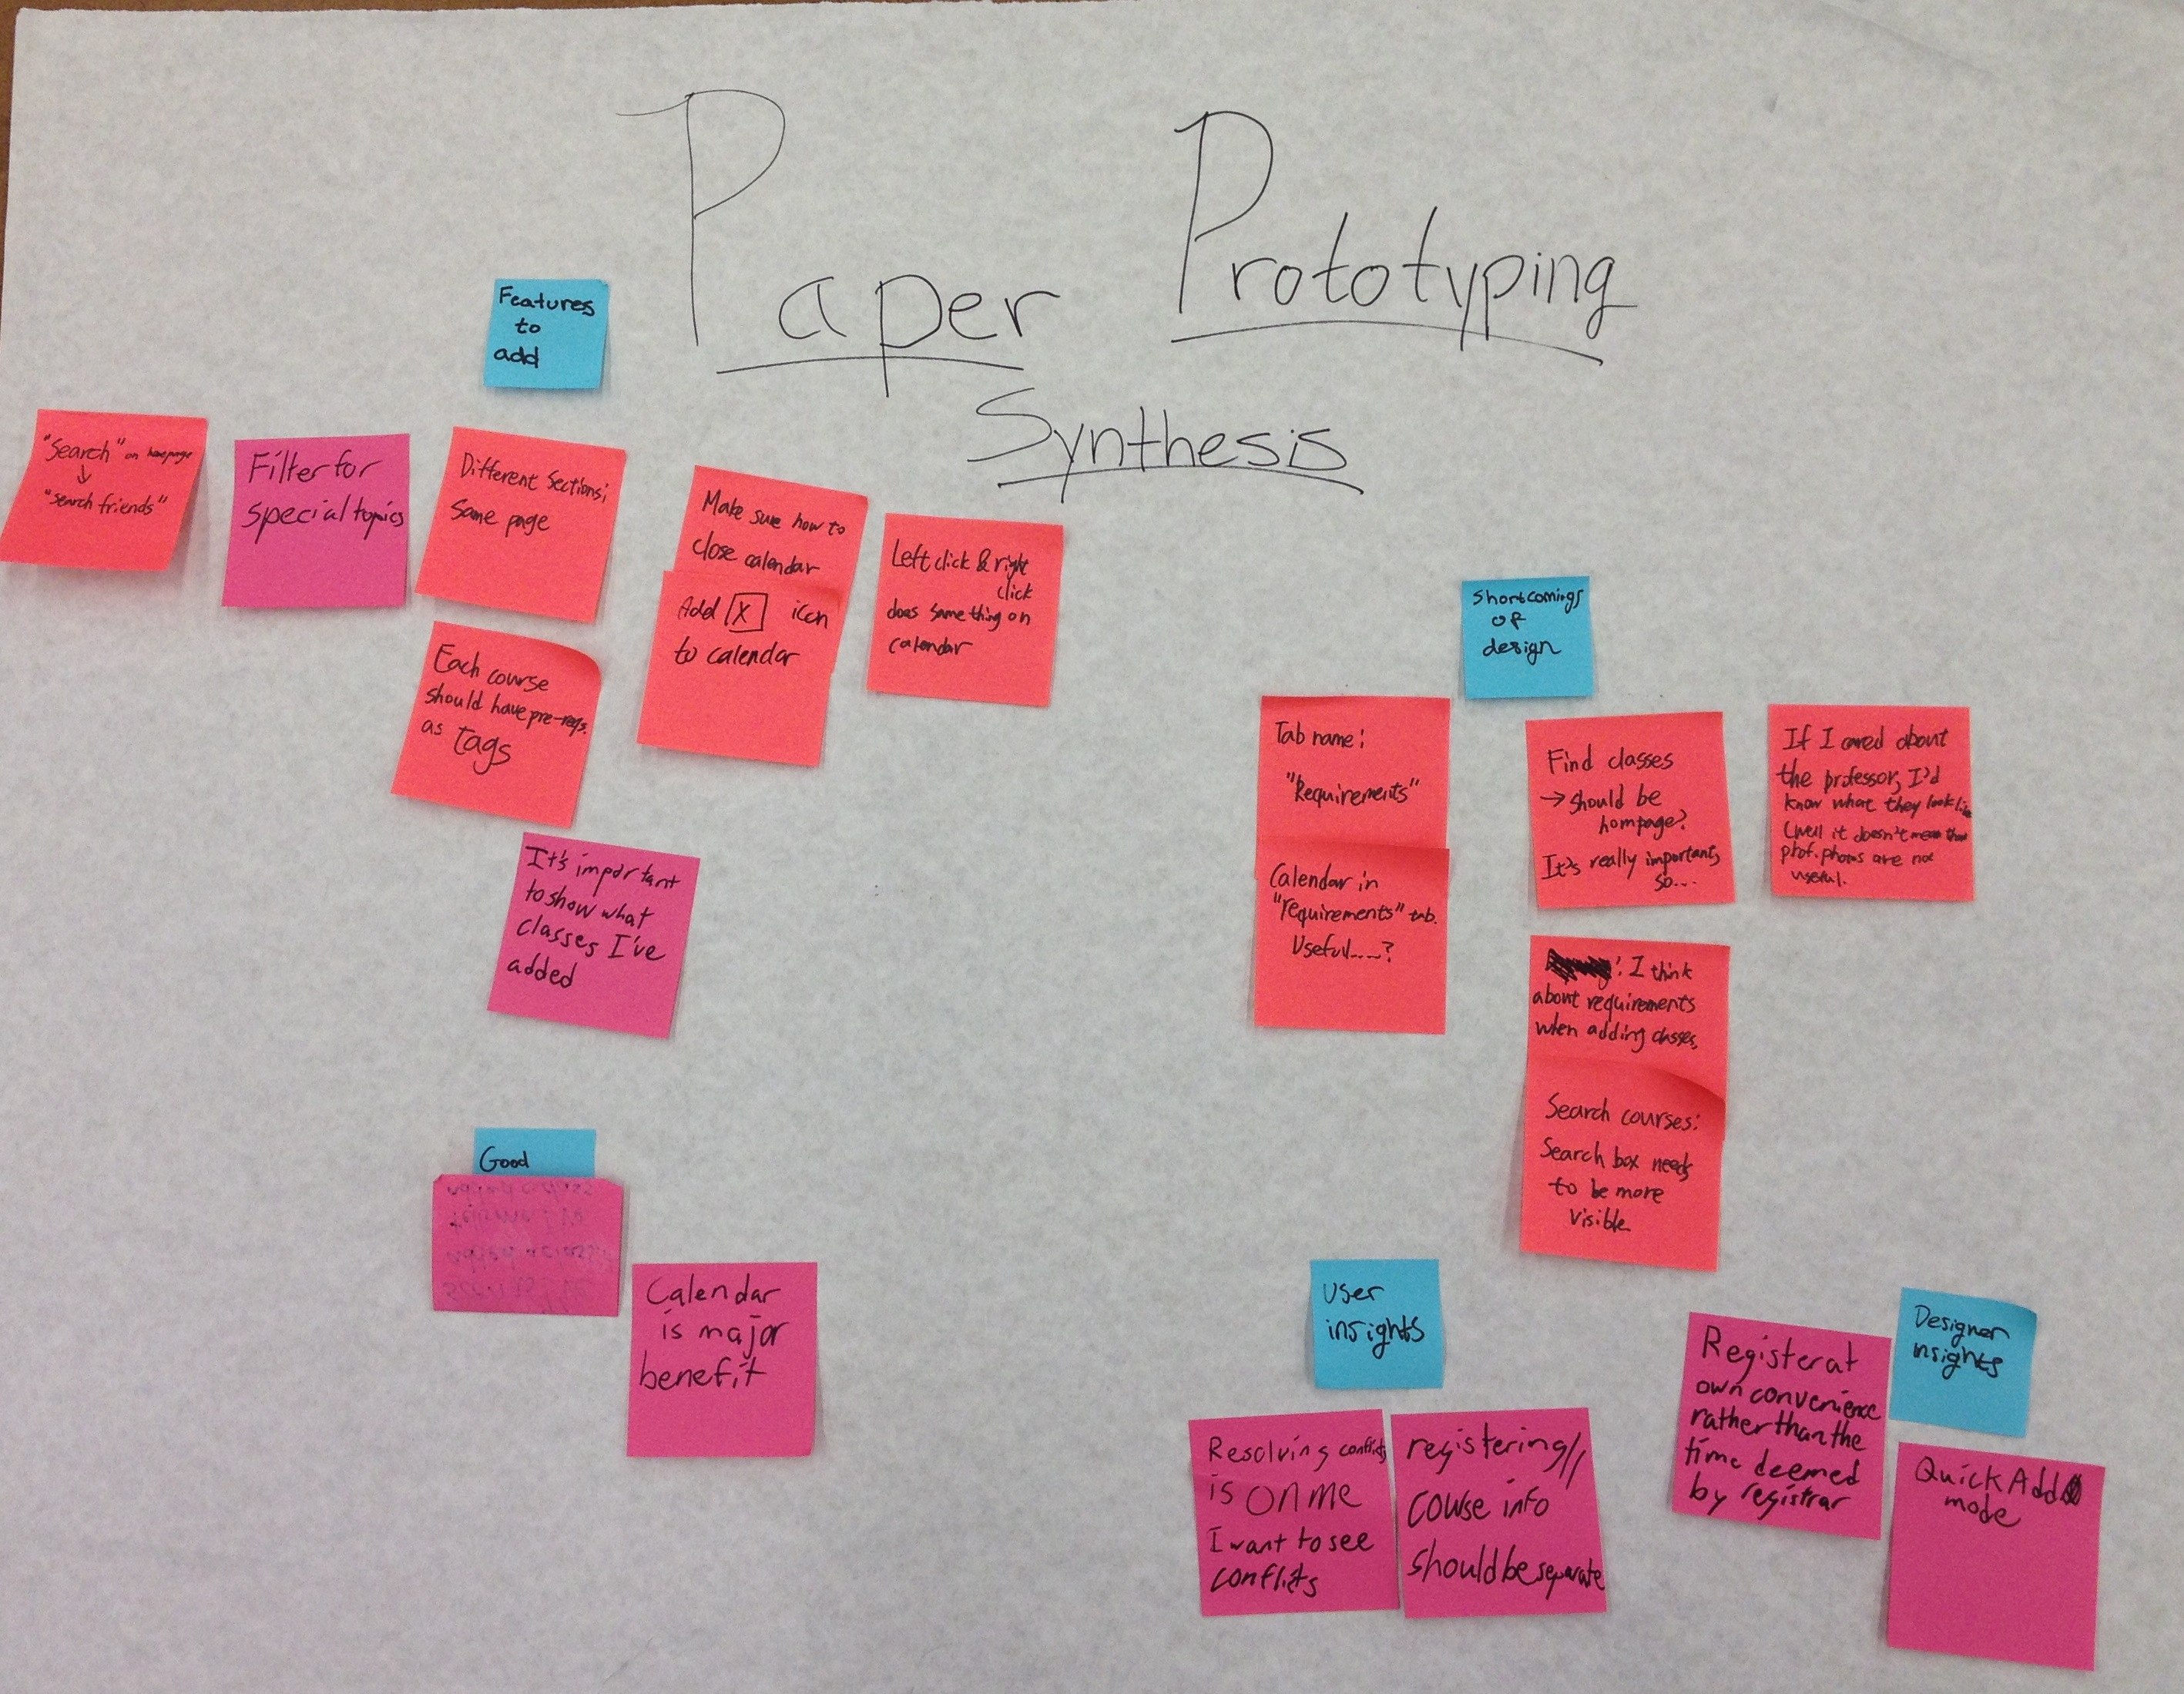 Paper Prototyping
Synthesis
Features
to
add
"Search" on homepage
↓
"search friends"
Filter for
special topics
Different Sections;
Same page
Make sure how to
close calendar
Add X icon
to calendar
Left click & right
click
does same thing on
calendar
Each course
should have pre-reqs.
as tags
It's important
to show what
classes I've
added
Good
Calendar
is major
benefit
Shortcomings
of
design
Tab name:
"Requirements"
Calendar in
"requirements" tab.
Useful.....?
Find classes
→ should be
hompage?
It's really important,
so...
If I cared about
the professor, I'd
know what they look like
(well it doesn't mean that
prof. photos are not
useful.
: I think
about requirements
when adding classes.
Search courses:
Search box needs
to be more
visible
User
insights
Resolving conflicts
is on me
I want to see
conflicts
registering//
course info
should be separate
Designer
insights
Register at
own convenience
rather than the
time deemed
by registrar
Quick Add
mode